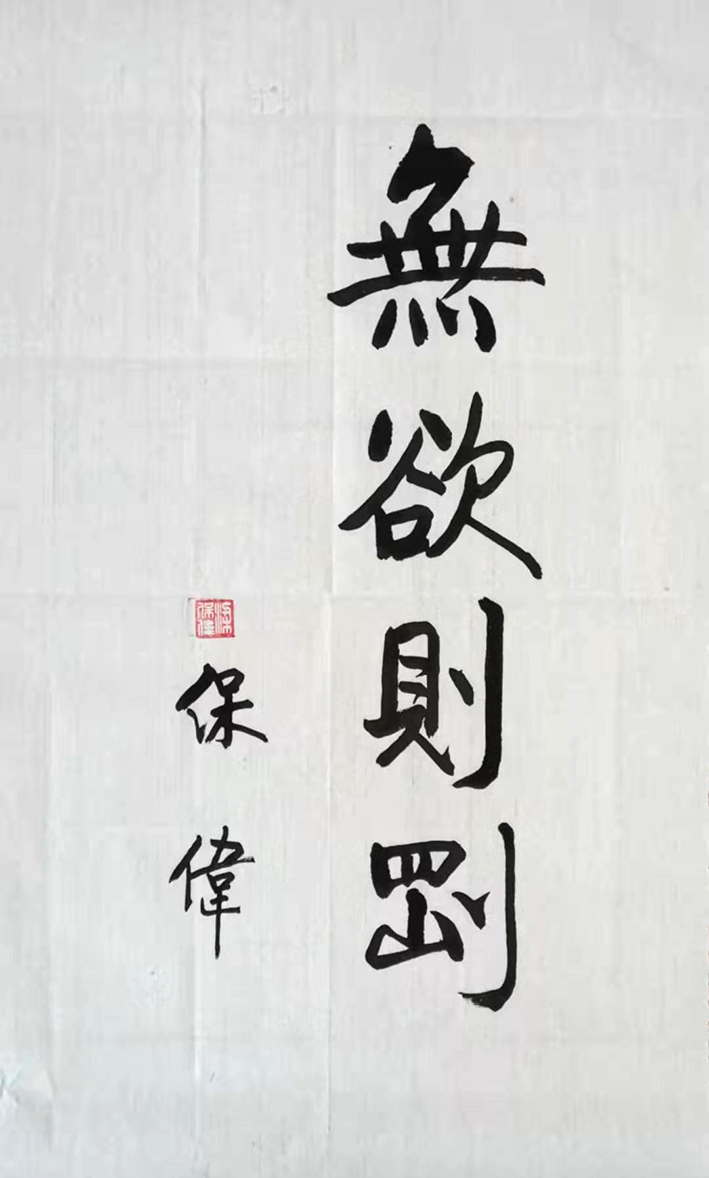 無欲則剛
保偉